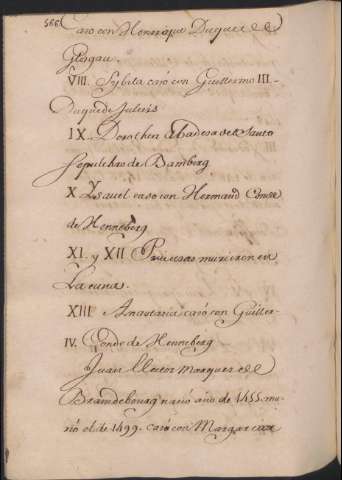 588
Caso con Henrrique Duque de
Glogau.
VIII. Sybila casó con Guillermo III.
Duque de Juliers
IX. Dorothea Abadesa del Santo
Sepulchro de Bamberg
X Ysavel caso con Hermand Conde
de Henneberg
XI. y XII Princesas murieron en
La cuna.
XIII Anastacia casó con Guiller-
IV. Conde de Henneberg
Juan Elector Marques de
Brandebourg nació año de 1455. mu-
rió el de 1499. casó con Margar